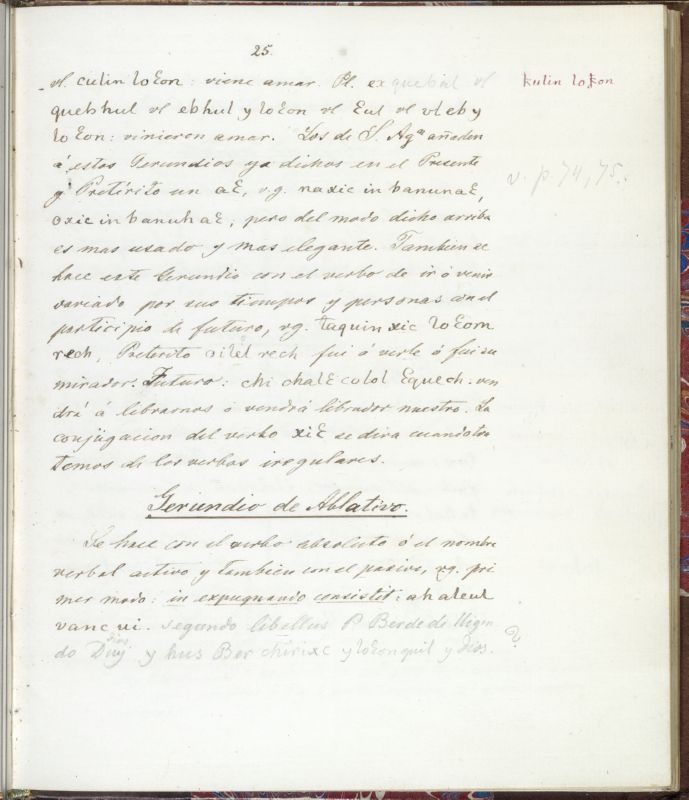 25.
vl. culin loƐon: viene amar. Pl. exquebul vl kulin lokon
quebhul vl ebhul y loƐon vl Ɛul vl vleb y
loƐon: vinieron amar. Los de S. Agª añaden
á estos Gerundios ya dichos en el Presente v. p. 74, 75.
y Pretérito un aƐ, v.g. naxic in banunaƐ,
oxic in banuhaƐ; pero del modo dicho arriba
es mas usado y mas elegante. Tambien se
hace este Gerundio con el verbo de ir ó venir
variado por sus tiempos y personas con el
participio de futuro, vg. taquin xic loƐom
rech, Preterito oilel rech fui á verle ó fui su
mirador. Futuro: chi chalƐ colol Ɛquech: ven
drá á librarnos ó vendrá librador nuestro. La
conjugacion del verbo xiƐ se dira cuando tra
temos de los verbos irregulares.
Gerundio de Ablativo.
Se hace con el verbo absoluto ó el nombre
verbal activo y tambien con el pasivo, vg. pri
mer modo: in expugnando consistit: ahaleul
vanc ui. segundo libellus P. Berde de
do y hus Ber chirixc y loƐonquil y Dios. ?
dios